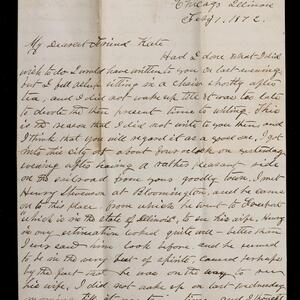 Chicago Illinois
Feby 1. 1872.
My Dearest Friend Kate
Had I done what I did
wish to do I would have written to you on last evening,
but I fell asleep sitting in a chair shortly after
tea, and I did not wake up till it was too late
to devote the then present time to writing. This
is the reason that I did not write to you then, and
I think that you will regard it as a good one. I got
into this City at about four o'clock on yesterday
evening after having a rather pleasant ride
on the railroad from your goodly town. I met
Henry Stevenson at Bloomington, and he came
on to this place from which he went to
"which is in the state of Illinois", to see his wife. Henry
in my estimation looked quite well - better than
I ever saw him look before and he seemed
to be in the very best of spirits, caused perhaps
by the fact that he was on the way to see
his wife. I did not wake up on last Wednesday
morning till it was